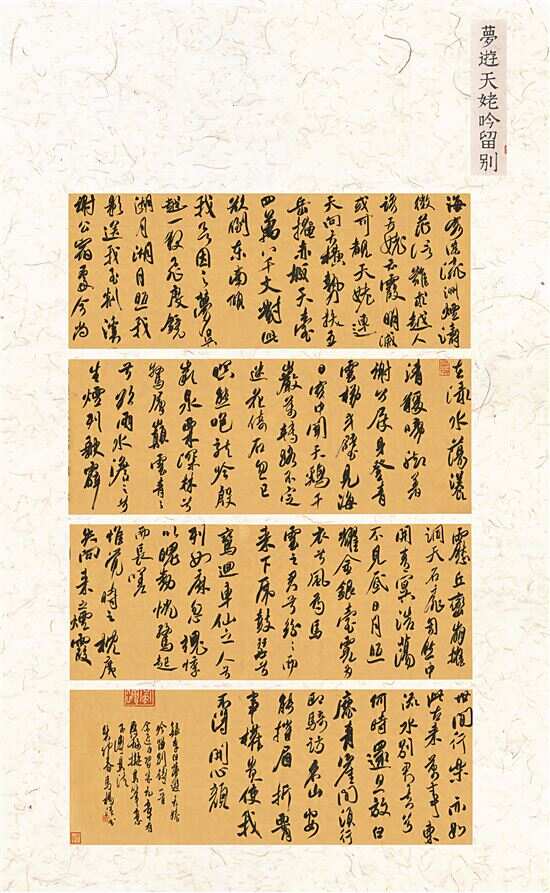 夢遊天姥吟留别
海客談瀛洲煙濤
微茫信難求越人
語天姥雲霞明滅
或可覩天姥連
天向天橫勢拔五
岳掩赤城天臺
四萬八千丈對此
欲倒東南傾
我欲因之夢吳
越一夜飛度鏡
湖月湖月照我
影送我至剡溪
謝公宿處今尚
在淥水蕩漾
清猨啼腳著
謝公屐身登青
雲梯半壁見海
日空中聞天鷄千
巖萬轉路不定
迷花倚石忽已
暝熊咆龍吟殷
巖泉栗深林兮
驚層巔雲青青
兮欲雨水澹澹兮
生煙列缺霹
靂丘巒崩摧
洞天石扉訇然中
開青冥浩蕩
不見底日月照
耀金銀臺霓為
衣兮風為馬
雲之君兮紛紛而
來下虎鼓瑟兮
鸞迴車仙之人兮
列如麻忽魂悸
以魄動恍驚起
而長嗟
惟覺時之枕席
失向來之煙霞
世間行樂亦如
此古來萬事東
流水別君去兮
何時還且放白
鹿青崖間須行
即騎訪名山安
能摧眉折腰
事權貴使我
不得開心顏
錄李白夢遊天姥
吟留別詩一首